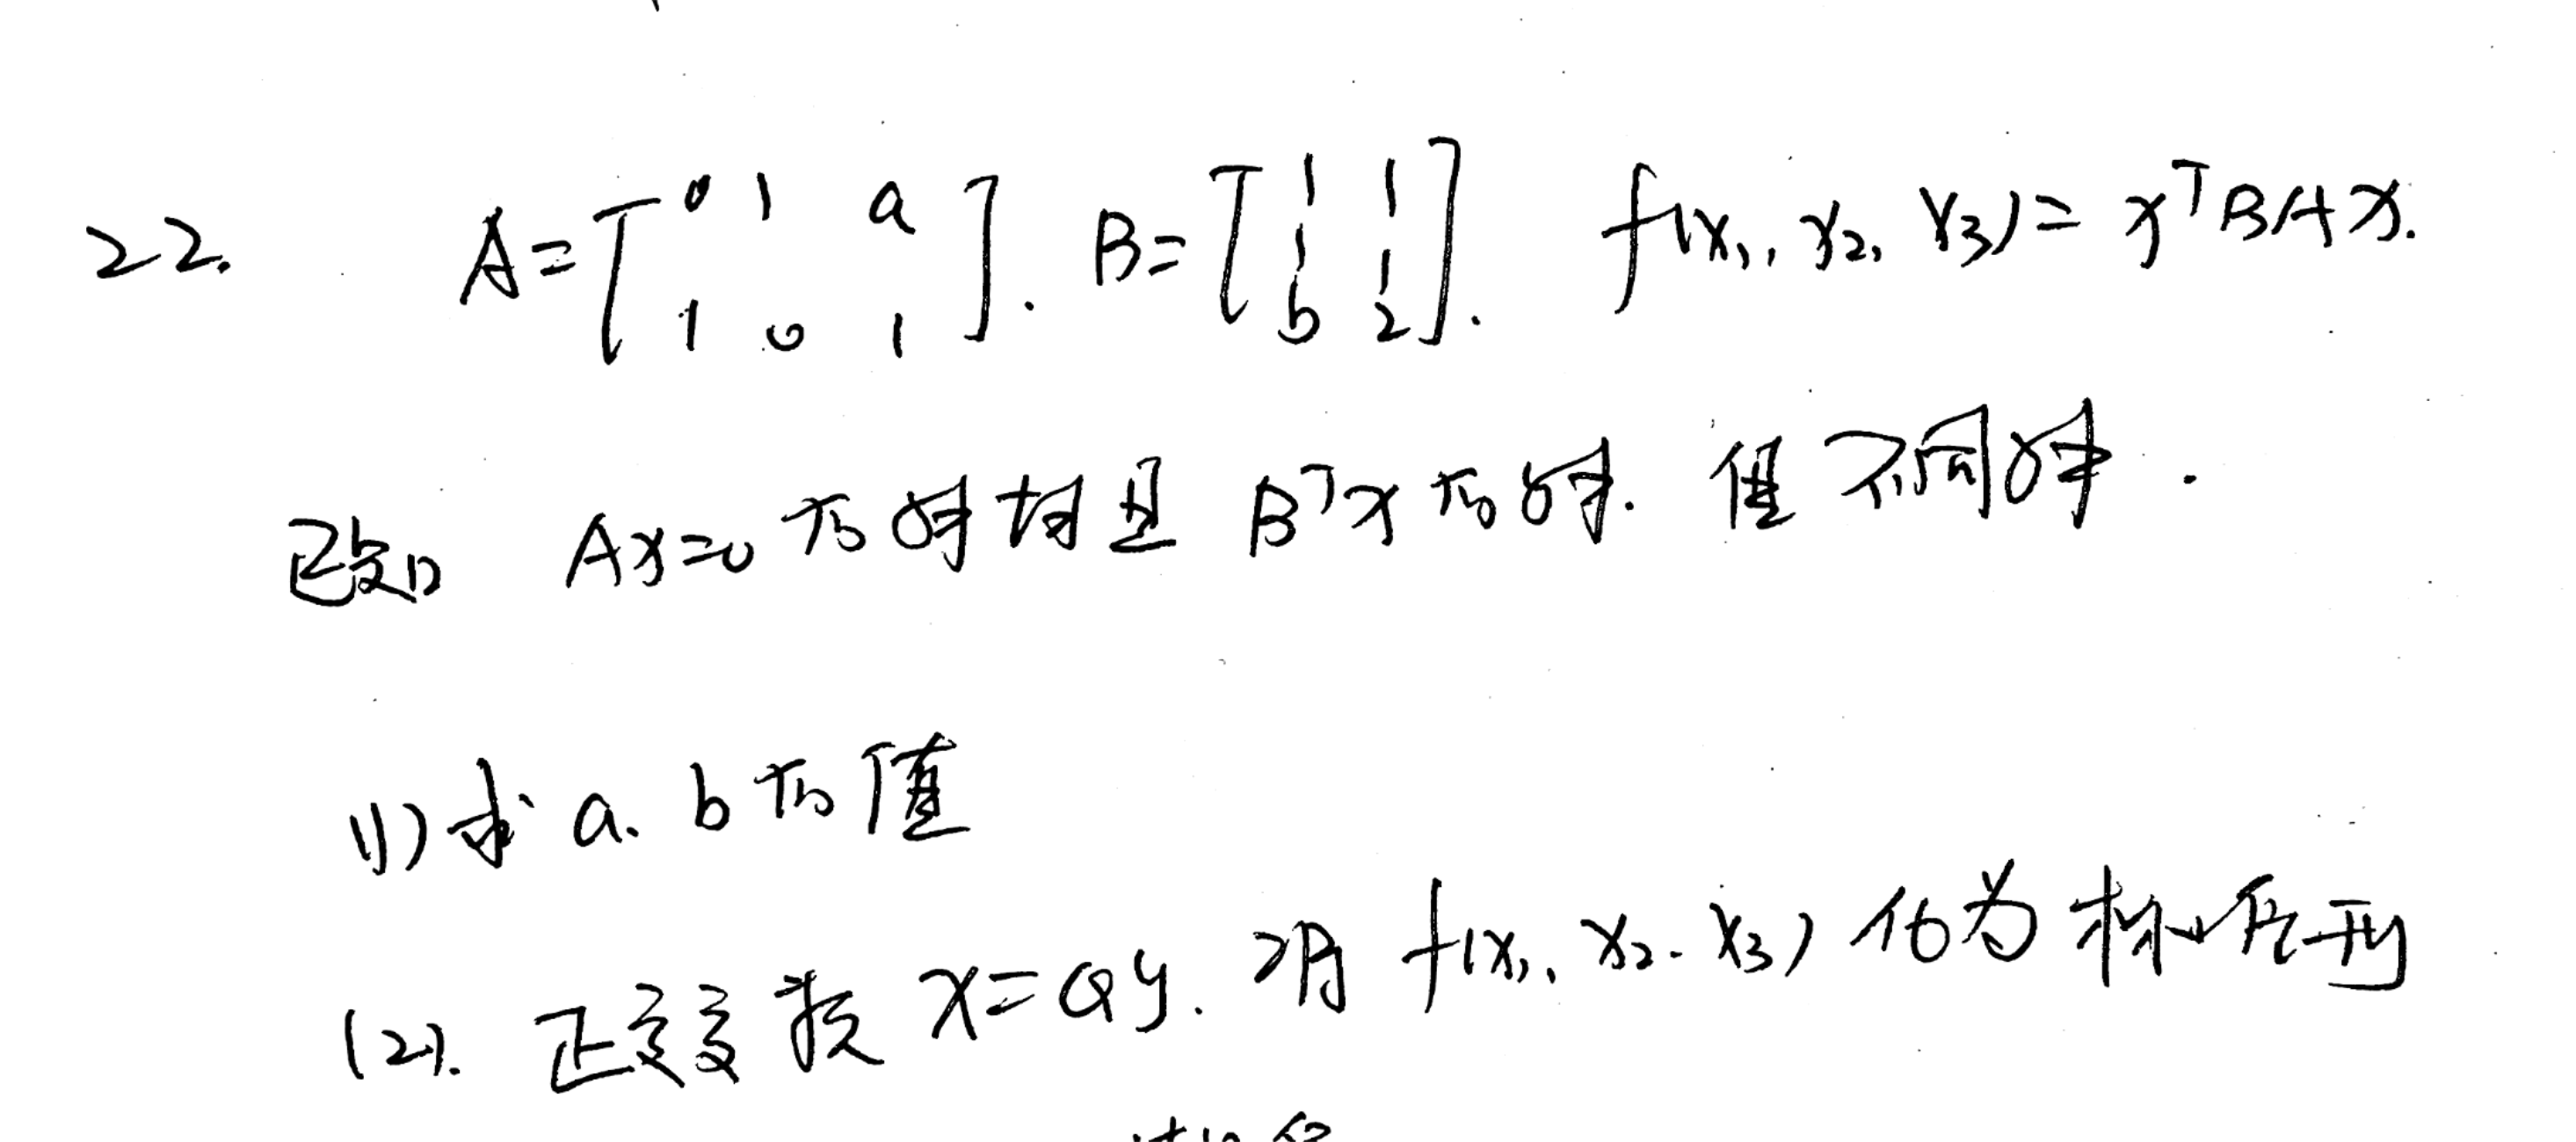 22. A=[0 1 a; 1 0 1]. B=[1 1; 1 1; b 2]. f(x₁, x₂, x₃)= xᵀBAx.
已知 Ax=0 的解均是 Bᵀx 的解. 但不同解.
(1) 求 a. b 的值
(2). 正交变换 x=Qy. 将 f(x₁, x₂. x₃) 化为标准型